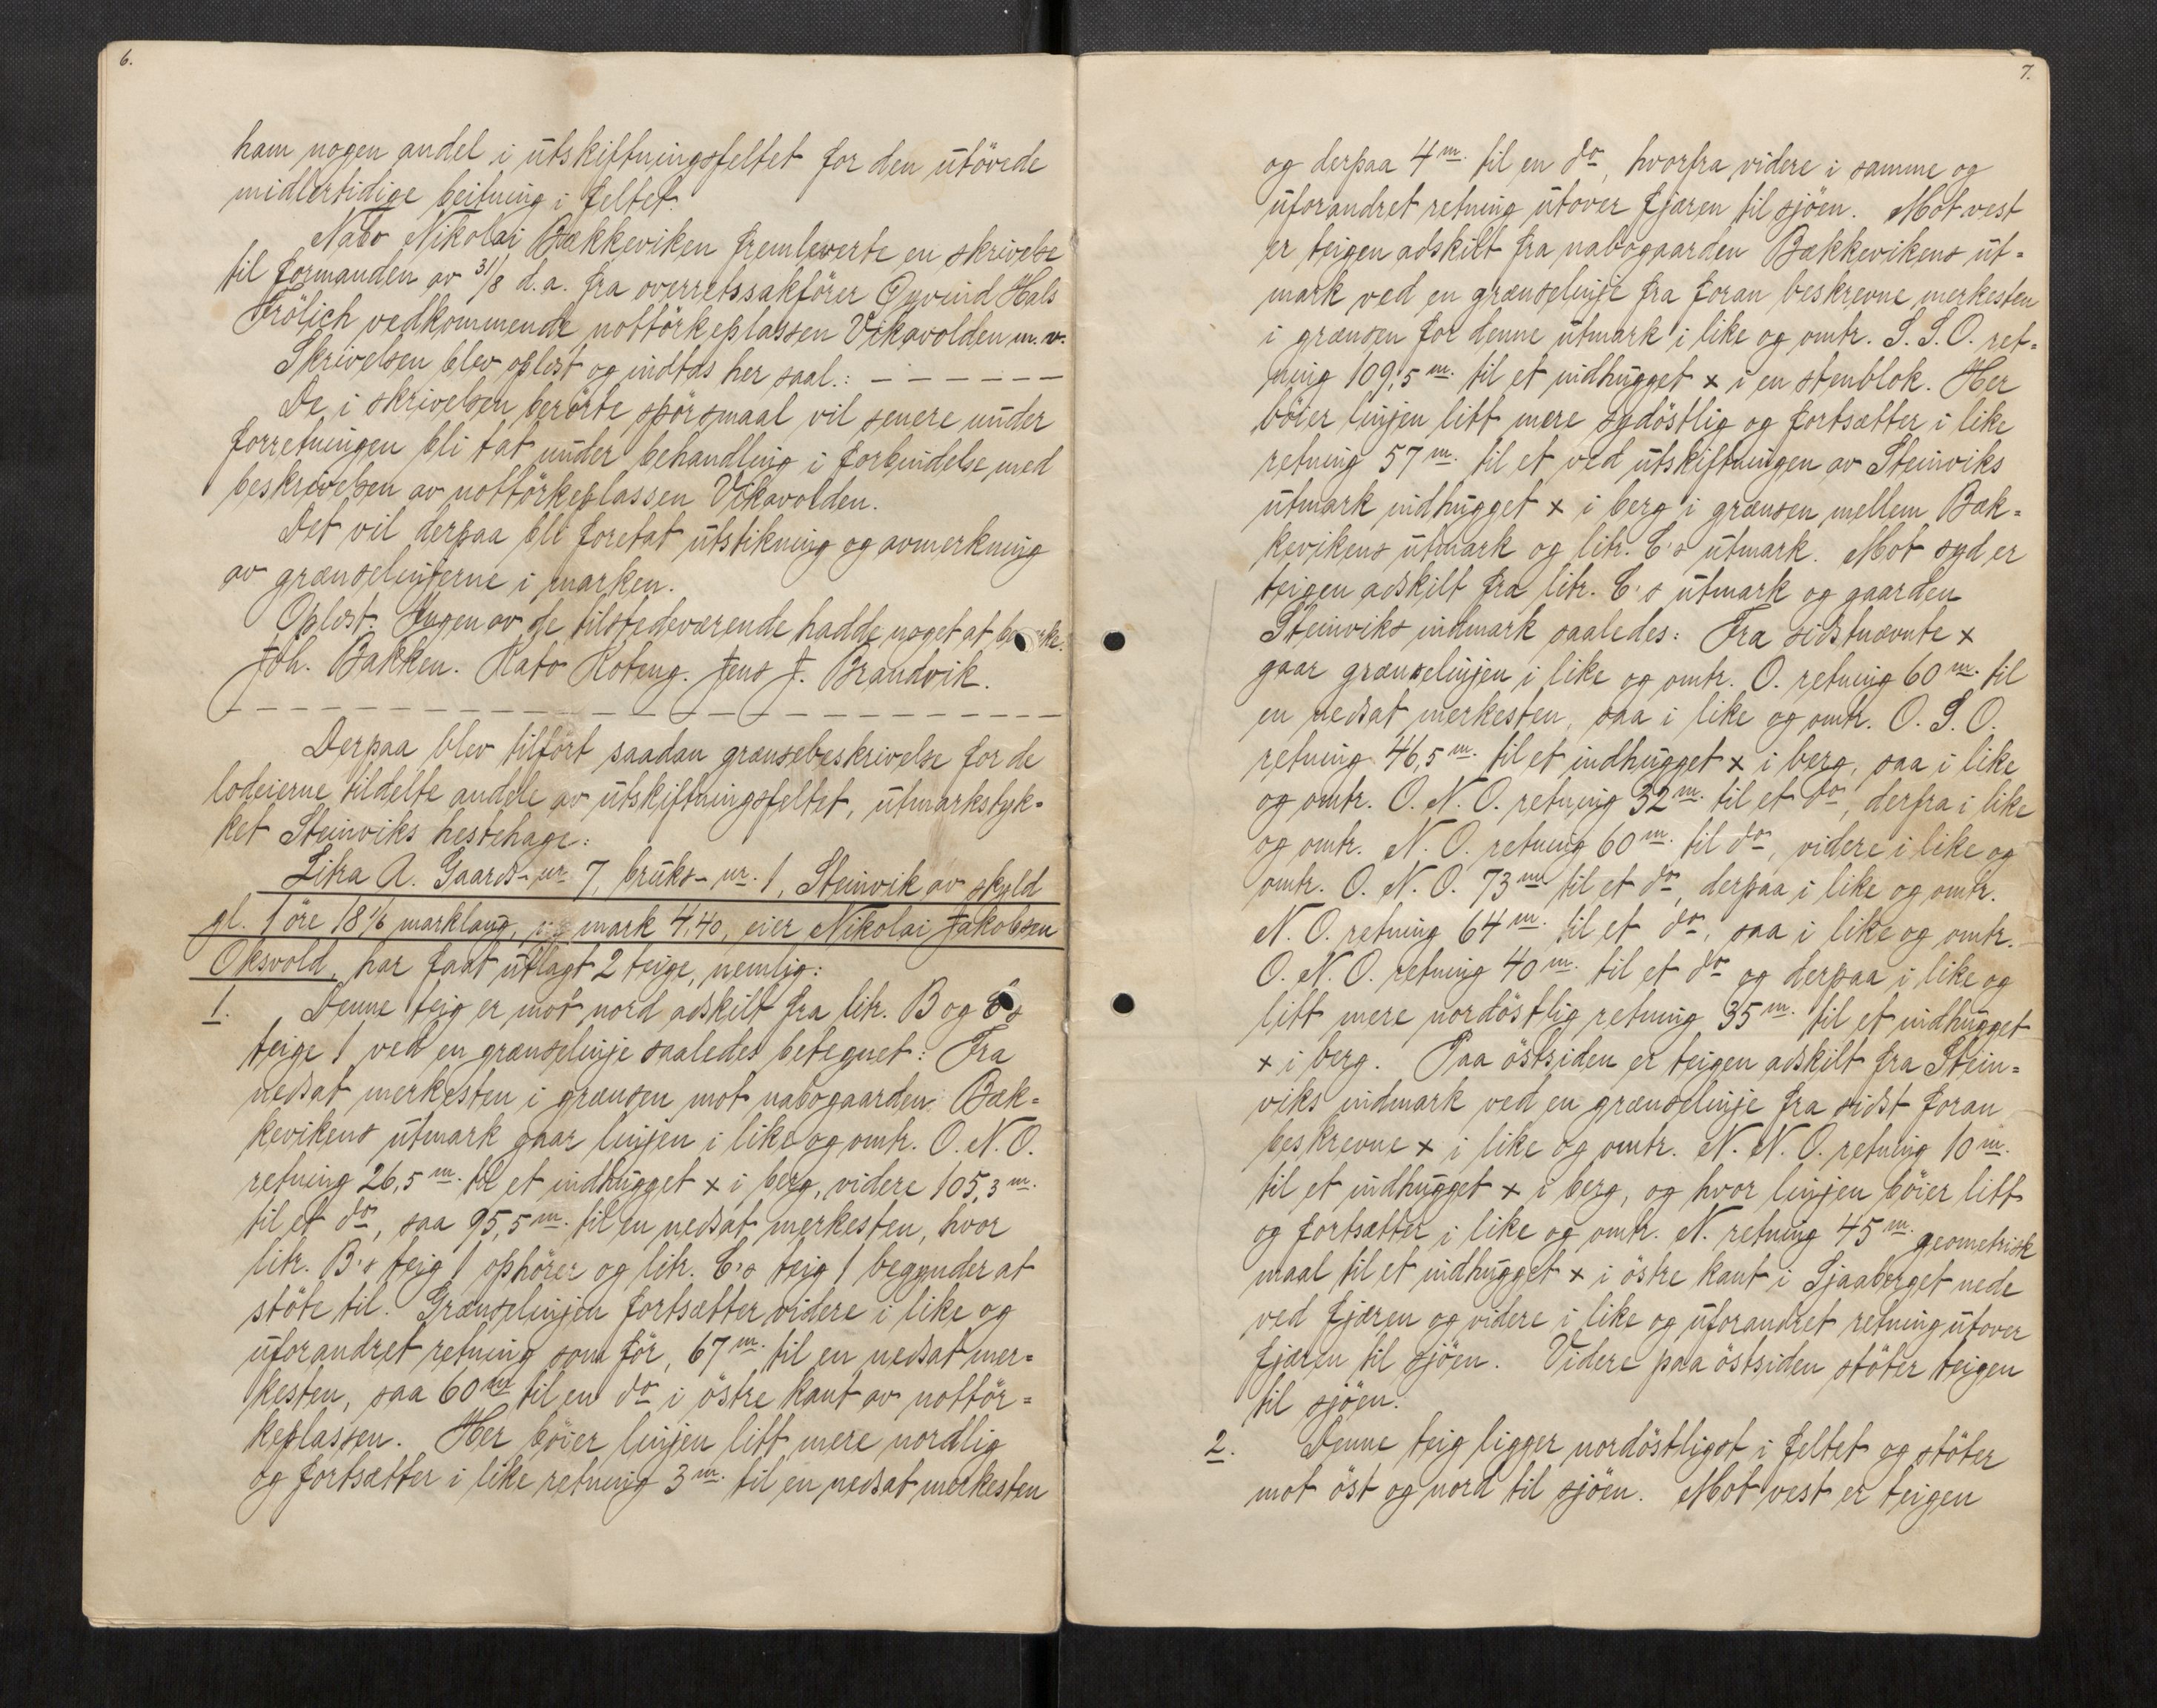 6.
ham nogen andel i utskiftningsfeltet for den utövede
midlertidige beitning i feltet.
Nabo Nikolai Bækkeviken fremleverte en skrivelse
til formanden av 31/8 d.a. fra overretssakförer Öyvind Hals
Frölich vedkommende nottörkeplassen Vikavolden m.v.
Skrivelsen blev oplest og indtas her saal.: – – – – – –
De i skrivelsen berörte spörsmaal vil senere under
forretningen bli tat under behandling i forbindelse med
beskrivelsen av nottörkeplassen Vikavolden.
Det vil derpaa bli foretat utstikning og avmerkning
av grænselinjerne i marken.
Oplest. Ingen av de tilstedeværende hadde noget at
Joh. Bakken. Kato Koteng. Jens J. Brandvik.
Derpaa blev tilfört saadan grænsebeskrivelse for de
lodeierne tildelte andele av utskiftningsfeltet, utmarkstyk=
ket Steinviks hestehage:
Litra A. Gaards-nr. 7, bruks-nr. 1, Steinvik av skyld
gl. 1 öre 18 1/6 marklaug, mark 4,40, eier Nikolai Jakobsen
Oksvold, har faat utlagt 2 teige, nemlig:
1. Denne teig er mot nord adskilt fra litr. B og C's
teige 1 ved en grænselinje saaledes betegnet: Fra
nedsat merkesten i grænsen mot nabogaarden Bæk=
kevikens utmark gaar linjen i like og omtr. O.N.O.
retning 26,5 m. til et indhugget x i berg, videre 105,3 m.
til et do, saa 95,5 m. til en nedsat merkesten, hvor
litr. B's teig 1 ophörer og litr. C's teig 1 begynder at
stöte til. Grænselinjen fortsætter videre i like og
uforandret retning som för, 67 m. til en nedsat mer=
kesten, saa 60 m til en do i östre kant av nottör=
keplassen. Her böier linjen litt mere nordlig
og fortsætter i like retning 3 m. til en nedsat merkesten
7.
og derpaa 4 m. til en do, hvorfra videre i samme og
uforandret retning utover fjæren til sjöen. Mot vest
er teigen adskilt fra nabogaarden Bækkevikens ut=
mark ved en grænselinje fra foran beskrevne merkesten
i grænsen for denne utmark i like og omtr. S.S.O. ret=
ning 109,5 m. til et indhugget x i en stenblok. Her
böier linjen litt mere sydöstlig og fortsætter i like
retning 57 m. til et ved utskiftningen av Steinviks
utmark indhugget x i berg i grænsen mellem Bæk=
kevikens utmark og litr. C's utmark. Mot syd er
teigen adskilt fra litr. C's utmark og gaarden
Steinviks indmark saaledes: Fra sidstnævnte x
gaar grænselinjen i like og omtr. O. retning 60 m. til
en nedsat merkesten, saa i like og omtr. O.S.O.
retning 46,5 m. til et indhugget x i berg, saa i like
og omtr. O.N.O. retning 32 m. til et do, derfra i like
og omtr. N.O. retning 60 m. til do, videre i like og
omtr. O.N.O. 73 m. til et do, derpaa i like og omtr.
N.O. retning 64 m. til et do, saa i like og omtr.
O.N.O. retning 40 m. til et do og derpaa i like og
litt mere nordöstlig retning 35 m. til et indhugget
x i berg. Paa östsiden er teigen adskilt fra Stein=
viks indmark ved en grænselinje fra sidst foran
beskrevne x i like og omtr. N.N.O. retning 10 m.
til et indhugget x i berg, og hvor linjen böier litt
og fortsætter i like og omtr. N. retning 45 m. geometrisk
maal til et indhugget x i östre kant i Sjaaberget nede
ved fjæren og videre i like og uforandret retning utover
fjæren til sjöen. Videre paa östsiden stöter teigen
til sjöen.
2. Denne teig ligger nordöstligst i feltet og stöter
mot öst og nord til sjöen. Mot vest er teigen